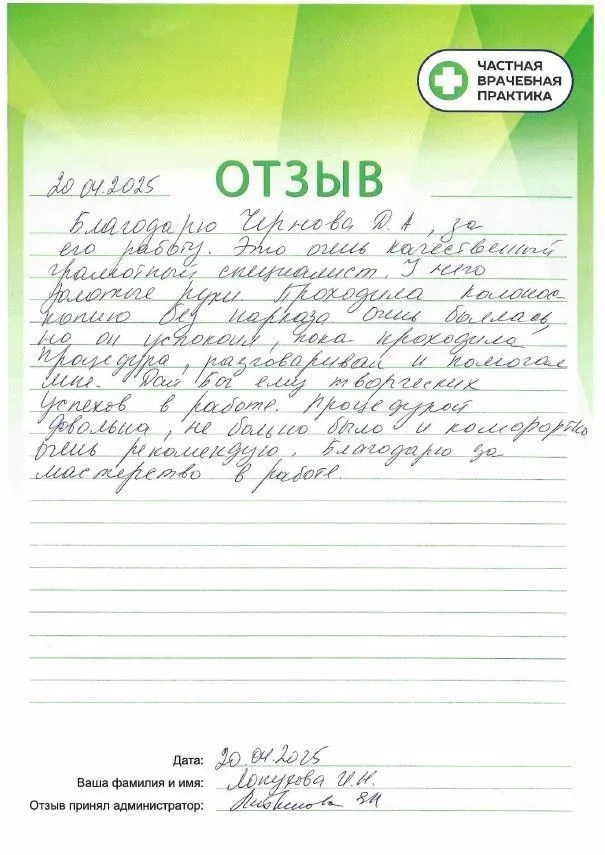 ЧАСТНАЯ
ВРАЧЕБНАЯ
ПРАКТИКА
20.04.2025 ОТЗЫВ
Благодарю Чернова Д.А, за
его работу. Это очень качественный
грамотный специалист. У него
золотые руки. Проходила колонос-
копию без наркоза очень боялась,
но он успокоил, пока проходила
процедура, разговаривал и помогал
мне. Дай Бог ему творческих
успехов в работе. Процедурой
довольна, не больно было и комфортно
очень рекомендую. Благодарю за
мастерство в работе.
Дата: 20.04.2025
Ваша фамилия и имя: Лопухова И.Н.
Отзыв принял администратор: